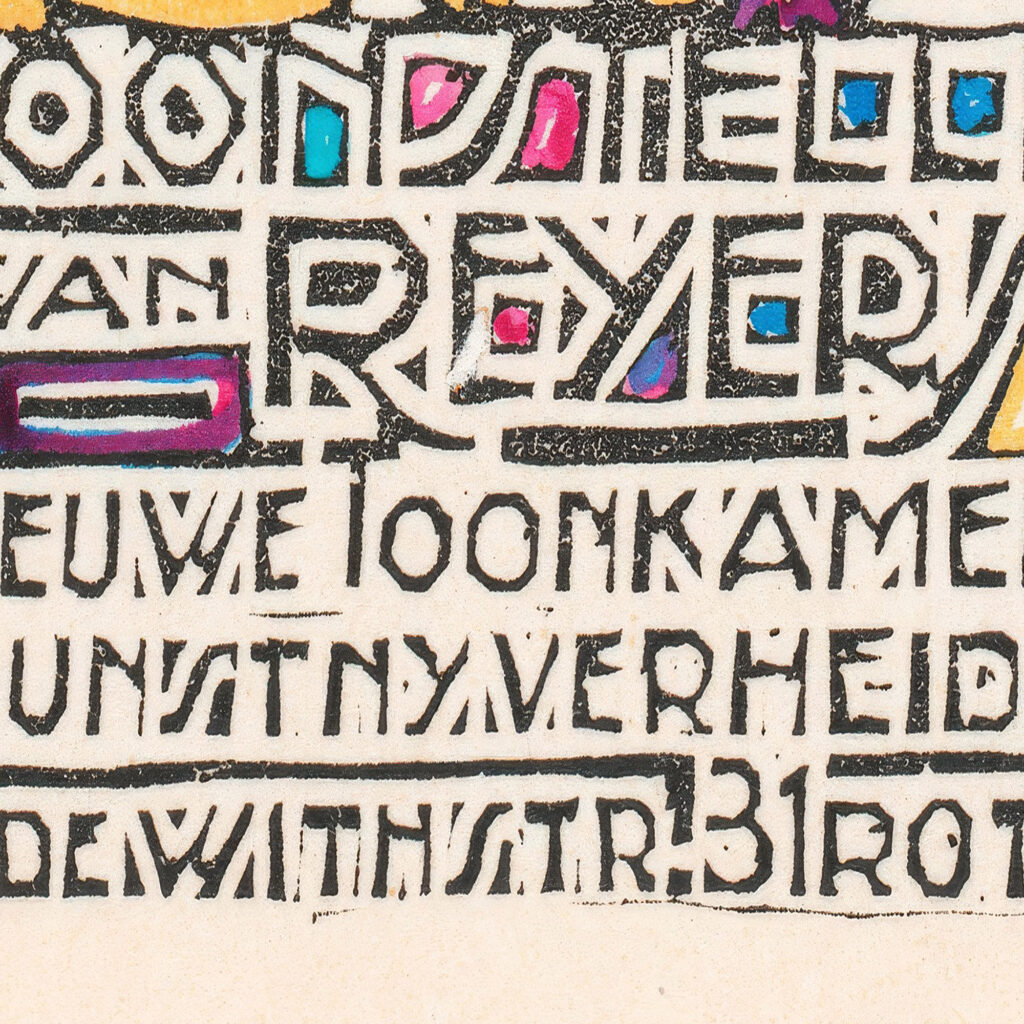 OONSTELL
VAN REYER S
EUWE TOONKAME
UNSTNYVERHEID
DE WITHSTR. 31 ROT